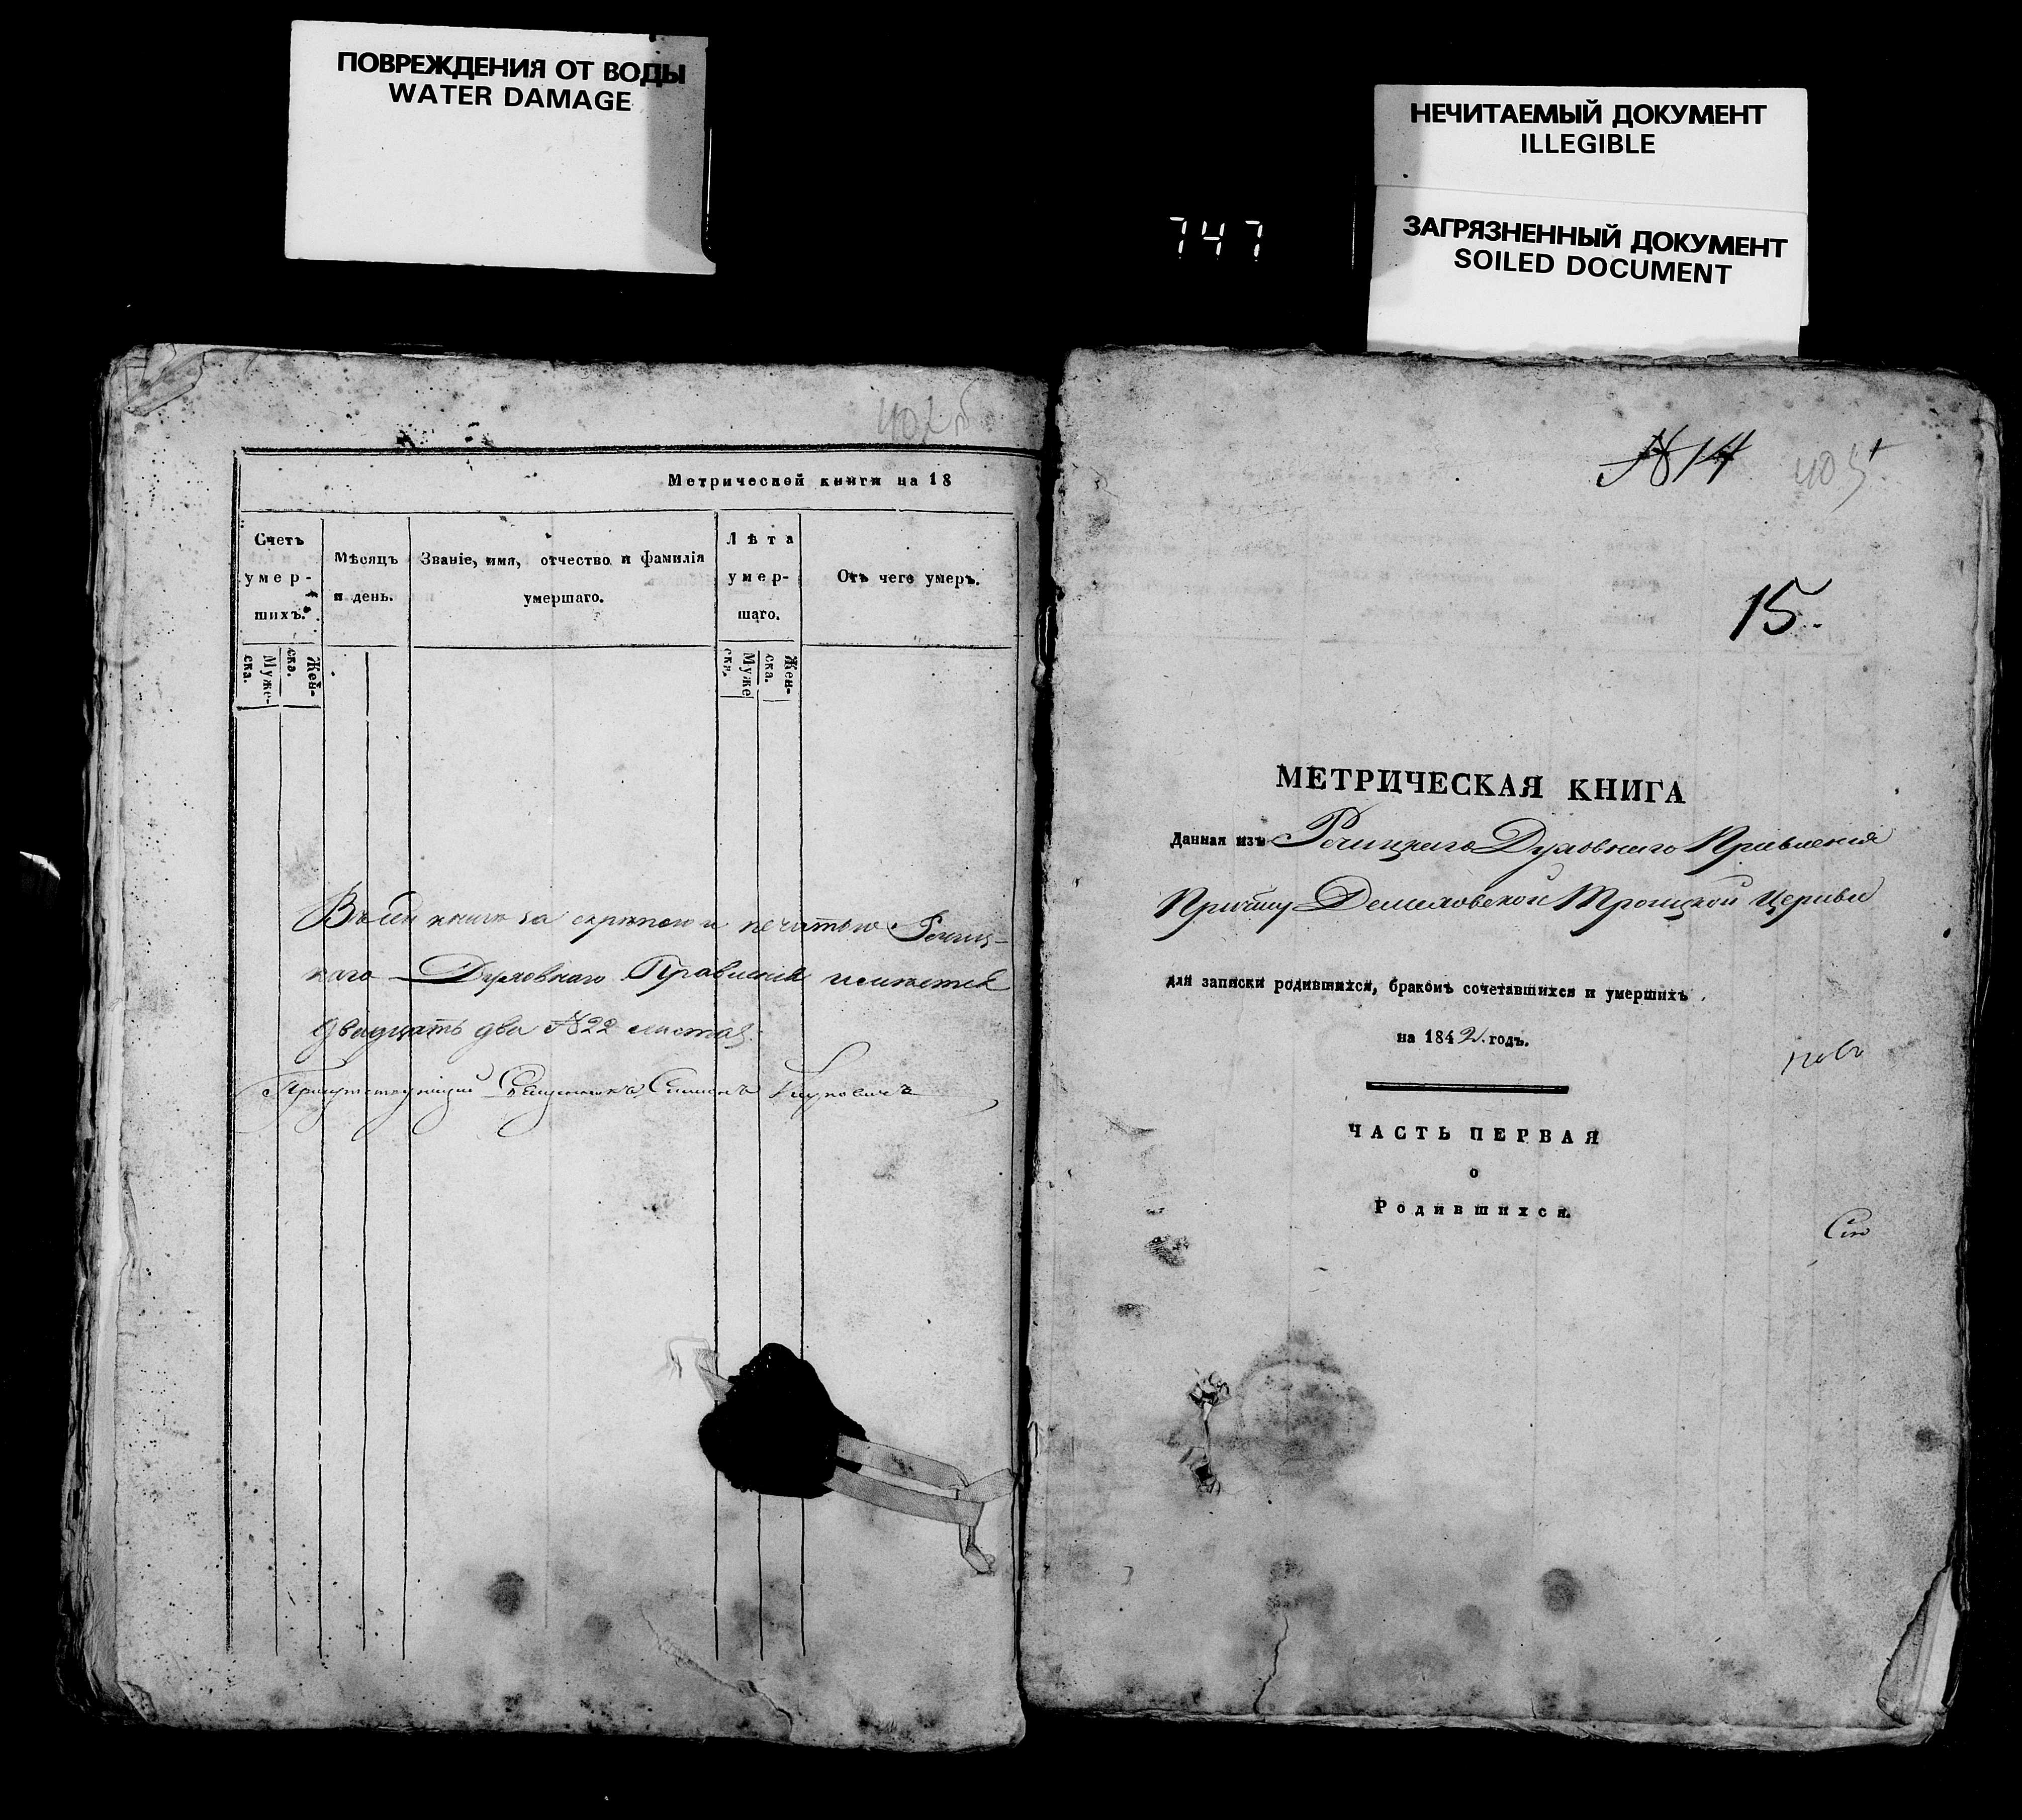 ПОВРЕЖДЕНИЯ ОТ ВОДЫ
WATER DAMAGE
НЕЧИТАЕМЫЙ ДОКУМЕНТ
ILLEGIBLE
ЗАГРЯЗНЕННЫЙ ДОКУМЕНТ
SOILED DOCUMENT
747
Метрической книги на 18
Счетъ
умер-
шихъ.
Муже-
ска.
Жен-
ска.
Мѣсяцъ
и день.
Званіе, имя, отчество и фамилія
умершаго.
Лѣта
умер-
шаго.
Муже
ска.
Жен-
ска.
Отъ чего умеръ.
Въ сей книге за скрепою и печатью Речиц-
каго Духовнаго Правления имеется
двадцать два №22 листа.
Присутствующий Священникъ Симонъ
№ 14
403
15.
МЕТРИЧЕСКАЯ КНИГА
Данная изъ Речицкаго Духовнаго Правления
Причту Демеховской Троицкой Церкви
для записки родившихся, бракомъ сочетавшихся и умершихъ
на 1842. годъ.
ЧАСТЬ ПЕРВАЯ
о
Родившихся.